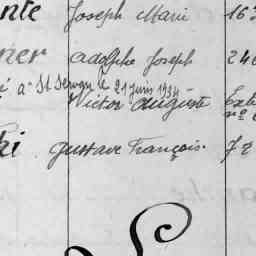 nte Joseph Marie 16
ner Adolphe Joseph 24
é à St Servan le 21 juin 1934
Victor Auguste Ext
n°
ki Gustave François. 72